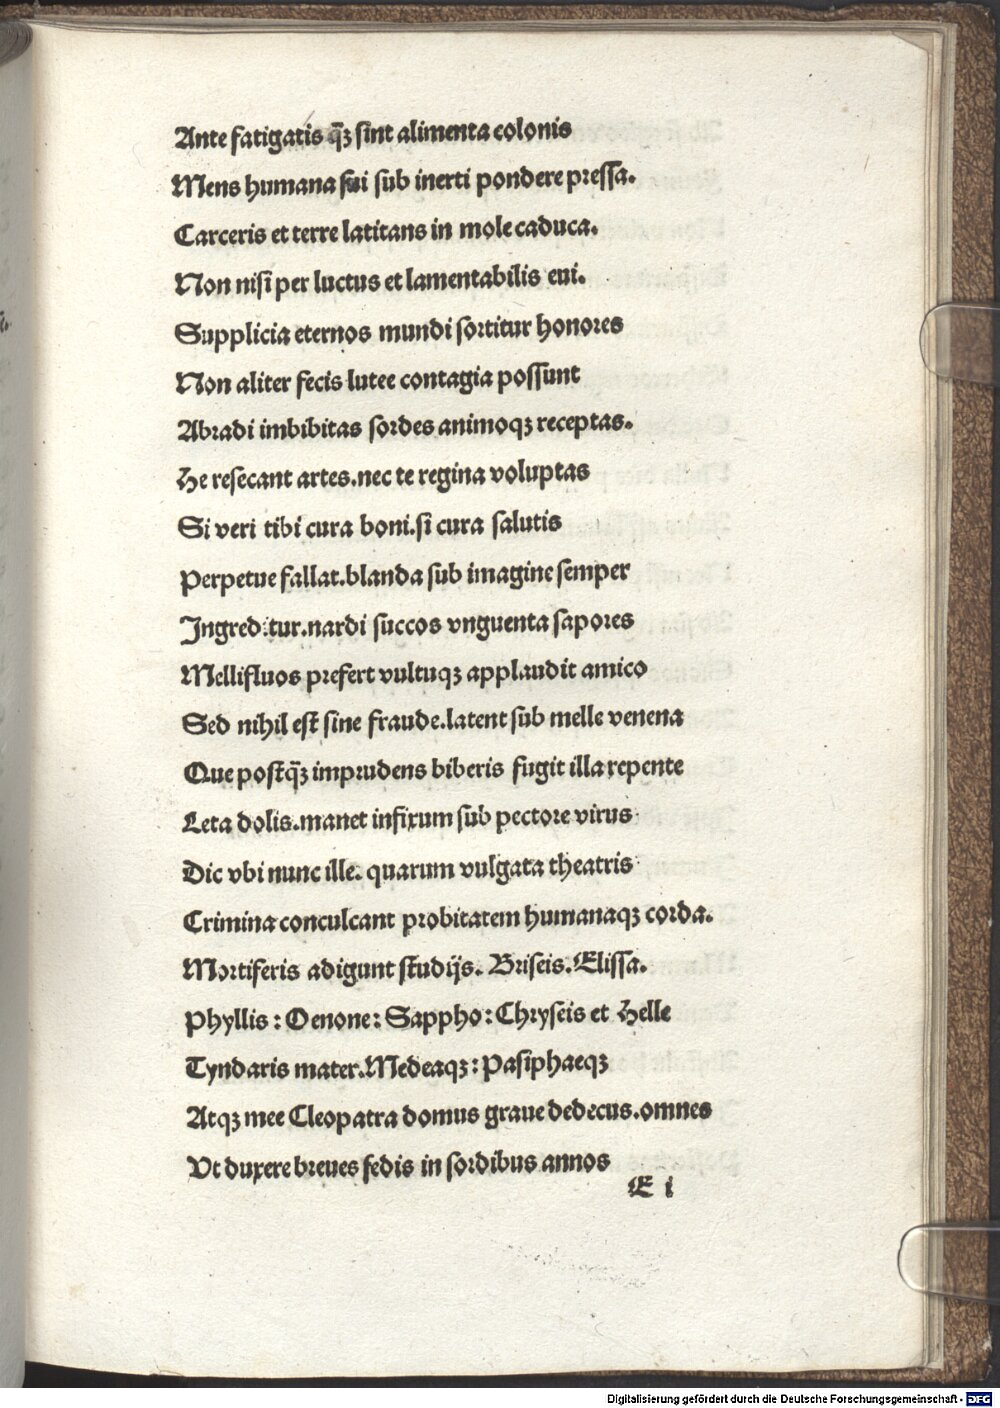 Ante fatigatis q̄ꝫ sint alimenta colonis
Mens humana sui sub inerti pondere pressa.
Carceris et terre latitans in mole caduca.
Non nisi per luctus et lamentabilis eui.
Supplicia eternos mundi sortitur honores
Non aliter fecis lutee contagia possunt
Abradi imbibitas sordes animoqꝫ receptas.
He resecant artes.nec te regina voluptas
Si veri tibi cura boni.si cura salutis
Perpetue fallat.blanda sub imagine semper
Ingreditur.nardi succos vnguenta sapores
Mellifluos prefert vultuqꝫ applaudit amico
Sed nihil est sine fraude.latent sub melle venena
Que postq̄ꝫ imprudens biberis fugit illa repente
Leta dolis.manet infixum sub pectore virus
Dic vbi nunc ille. quarum vulgata theatris
Crimina conculcant probitatem humanaqꝫ corda.
Mortiferis adigunt studijs. Briseis.Elissa.
Phyllis : Oenone : Sappho : Chryseis et Helle
Tyndaris mater.Medeaqꝫ : Pasiphaeqꝫ
Atqꝫ mee Cleopatra domus graue dedecus.omnes
Vt duxere breues fedis in sordibus annos
E i
Digitalisierung gefördert durch die Deutsche Forschungsgemeinschaft - DFG